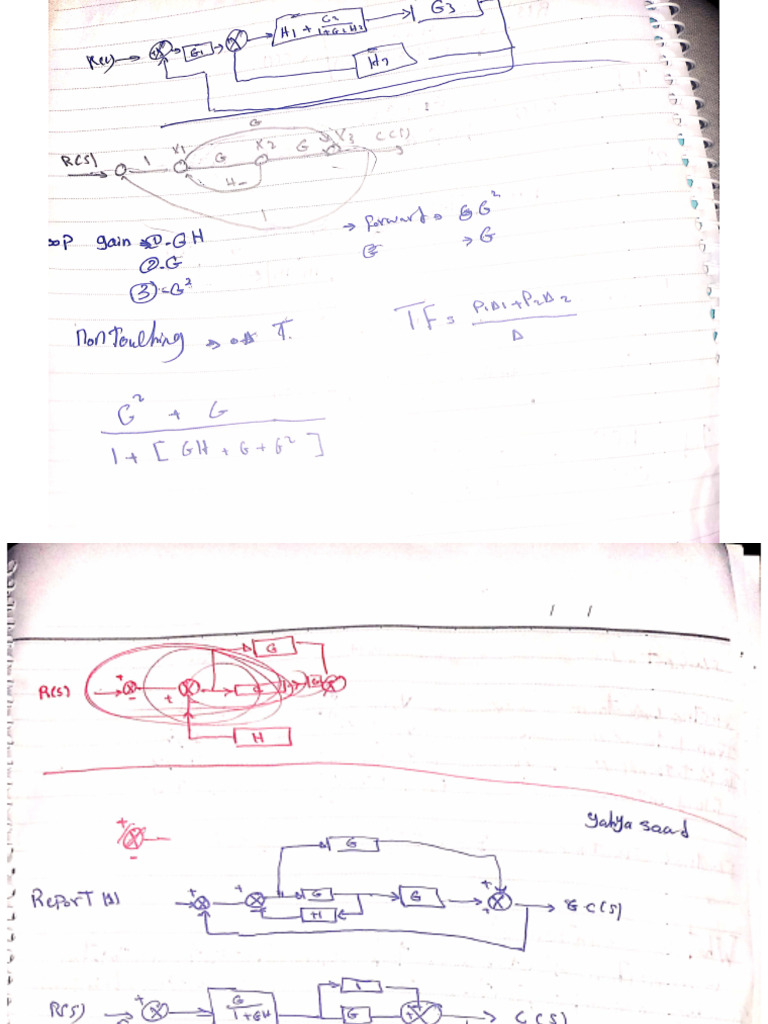 R(s) G1 H1 + G2/1+G2H2 G3
H2
G
R(S) 1 X1 G X2 G X3 C(S)
H
1
P gain ① -GH
② -G
③ = -G²
→ Forward → G²
→ G
non Touching →
TF = P₁Δ₁+P₂Δ₂ / Δ
G² + G
1 + [ GH + G + G² ]
/ /
G
R(S) + - + G G
H
+ -
yahya saad
G
Report (1) + + G G + + C(S)
H
1
R(S) + G/1+GH G + C(S)